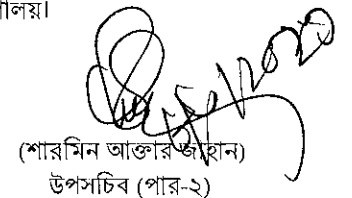 ণালয়।
(শারমিন আক্তার জাহান)
উপসচিব (পার-২)